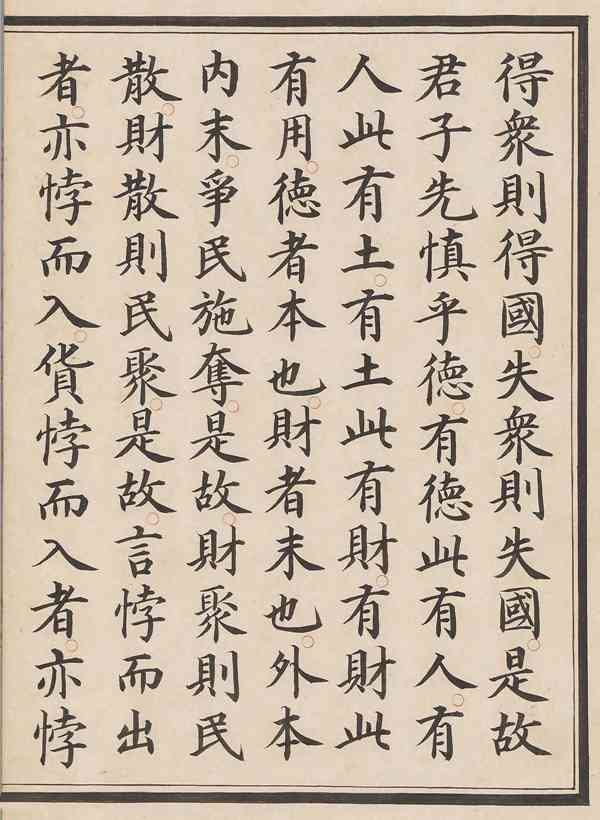 得衆則得國。失衆則失國。是故
君子先慎乎德。有德此有人。有
人此有土。有土此有財。有財此
有用。德者本也。財者末也。外本
内末。爭民施奪。是故。財聚則民
散。財散則民聚。是故。言悖而出
者。亦悖而入。貨悖而入者。亦悖